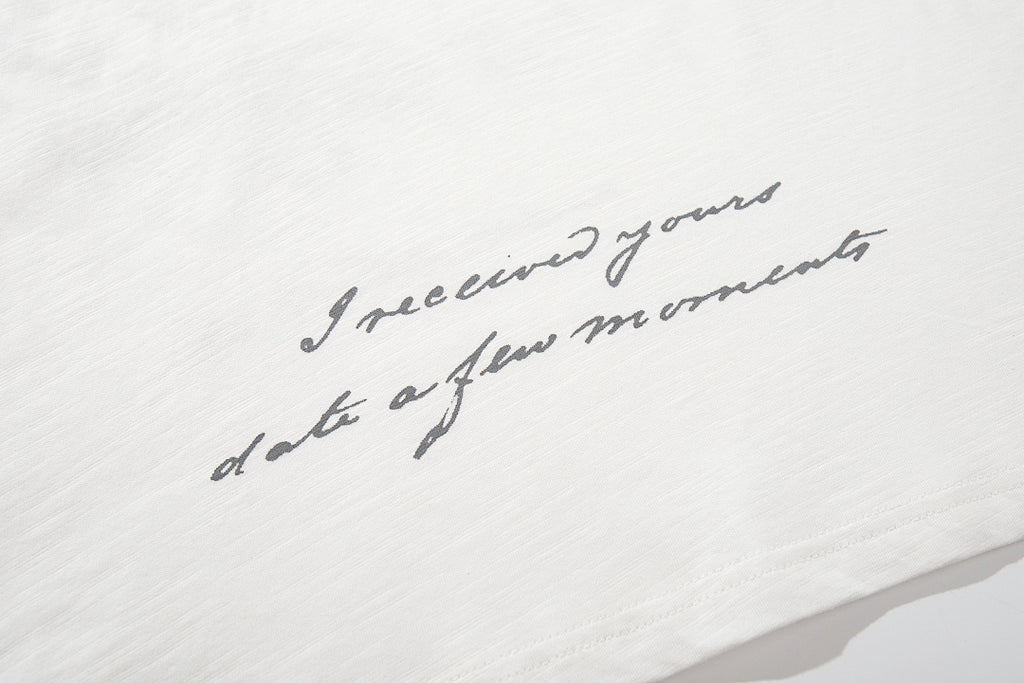 I received yours
date a few moments